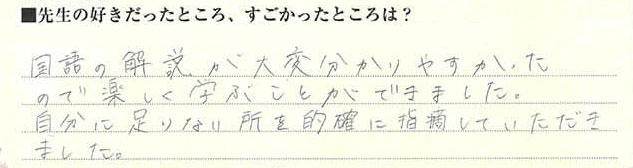 ■先生の好きだったところ、すごかったところは？
国語の解説が大変分かりやすかった
ので楽しく学ぶことができました。
自分に足りない所を的確に指摘していただき
ました。